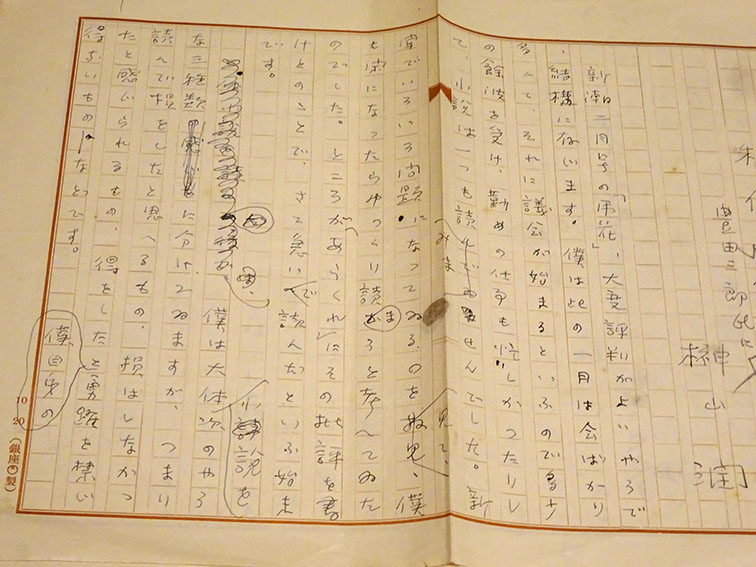 豊田三郎氏に
榊山 潤
新潮二月号の「弔花」、大変評判がよいやうで
、結構に存います。僕は此の一月は会ばかり
多くて、それに議会が始まるといふので多少
の餘波を受け、勤めの仕事も忙しかつたりし
て、小説は一つも読んでゐませんでした。新
聞でいろいろ問題になつてゐるのを見て、僕
も楽になつたらゆつくり読まうと考へてゐた
のでした。ところがあらくれにその批評を書
けとのことで、さて急いで読んだといふ始末
です。
僕は大体次のやう
小説を
な三種類に分けてゐますが、つまり
読んで損をしたと思へるもの、損はしなかつ
たと感じられるもの、得をしたと勇躍を禁じ
得ないもの―などです。
僕自身の
10 20
(銀座 製)